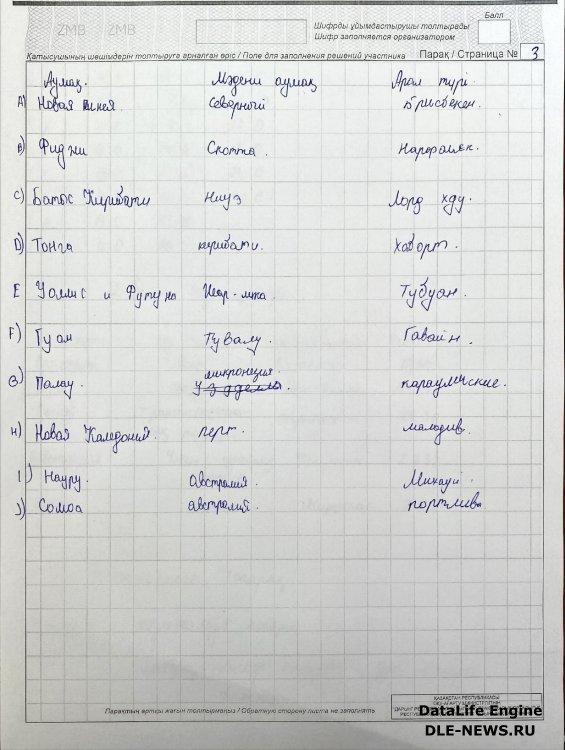 ZMB ZMB
Балл
Шифрды ұйымдастырушы толтырады
Шифр заполняется организатором
Қатысушының шешімдерін толтыруға арналған өріс / Поле для заполнения решений участника Парақ / Страница № 3
Аумақ. Мәдени аумақ Арал түрі
A) Новая Гинея. Северный Брисбекен.
B) Фиджи Скотта. Нарфольк.
C) Батыс Кирибати Ниуэ Лорд хду.
D) Тонга кирибати. Хоборт.
E Уоллис и Футуна Тубуан.
F) Гуам Тувалу. Гавайи.
G) Палау. микронезия. параулиские.
H) Новая Каледония. перт. малодив.
I) Науру. Австралия.
J) Самоа австралия.
Парақтың артқы жағын толтырмаңыз / Обратную сторону листа не заполнять
ҚАЗАҚСТАН РЕСПУБЛИКАСЫ
ОҚУ-АҒАРТУ МИНИСТРЛІГІНІҢ
DataLife Engine
DLE-NEWS.RU